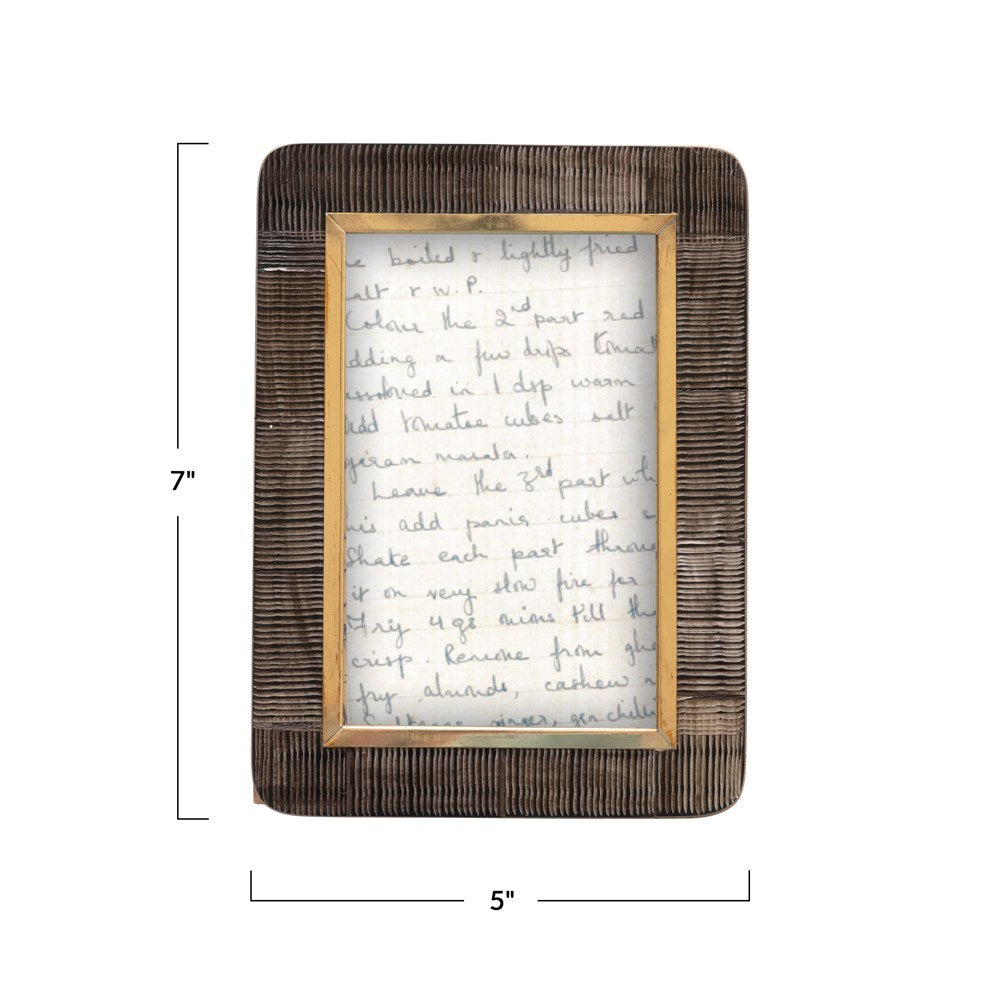 e boiled & lightly fried
alt & W.P.
Colour the 2nd part red
dding a few drps tomat
issolved in 1 dsp warm
add tomatoe cubes salt
giram masala.
Leave the 3rd part wh
his add panir cubes
Shake each part throug
it on very slow fire for
Fry 4 gs onions till th
crisp. Remove from ghe
fry almonds, cashew n
ginger, gen chilli
7"
5"